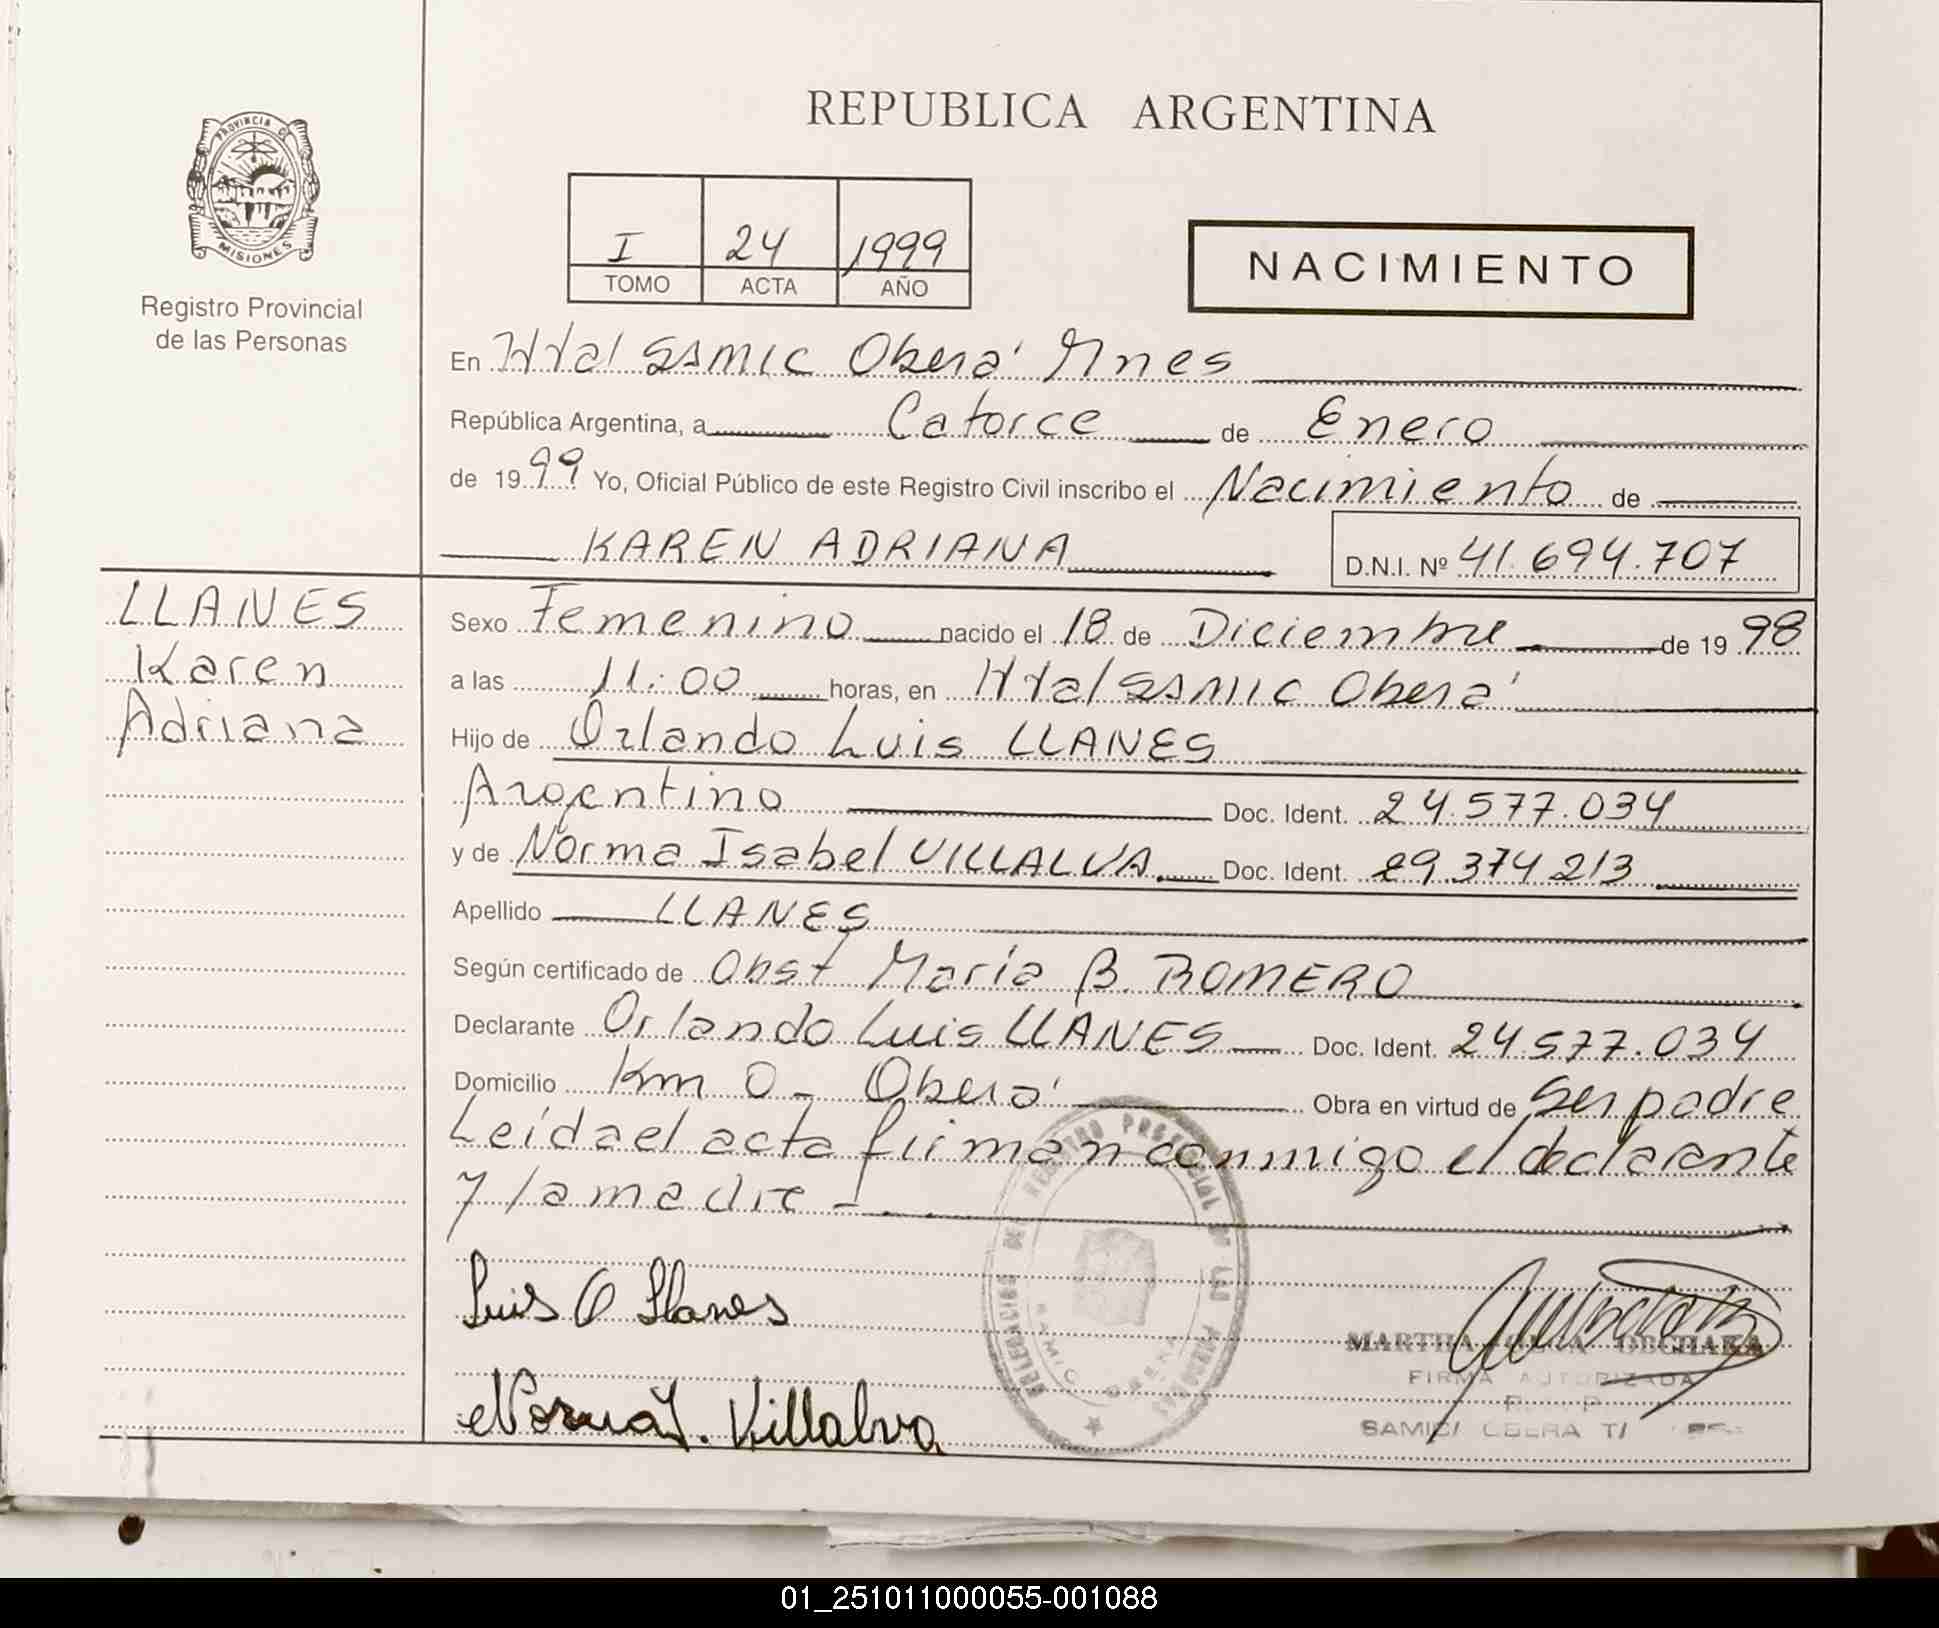 PROVINCIA DE
MISIONES
Registro Provincial
de las Personas
REPUBLICA ARGENTINA
I 24 1999
TOMO ACTA AÑO
NACIMIENTO
En Htal SAMIC Oberá Mnes
República Argentina, a Catorce de Enero
de 1999 Yo, Oficial Público de este Registro Civil inscribo el Nacimiento de
KAREN ADRIANA D.N.I. Nº 41.694.707
LLANES
Karen
Adriana
Sexo Femenino nacido el 18 de Diciembre de 19 98
a las 11:00 horas, en Htal SAMIC Oberá
Hijo de Orlando Luis LLANES
Argentino Doc. Ident. 24.577.034
y de Norma Isabel VILLALVA Doc. Ident. 29.374.213
Apellido LLANES
Según certificado de Obst María B. ROMERO
Declarante Orlando Luis LLANES Doc. Ident. 24.577.034
Domicilio Km 0 - Oberá Obra en virtud de Ser padre
Leída el acta firman conmigo el declarante
y la madre -
DELEGACION DEL REGISTRO PROVINCIAL DE LAS PERSONAS
SAMIC OBERA
Luis O Llanes
Norma I. Villalva
MARTHA OBCHAKA
FIRMA AUTORIZADA
SAMIC/ OBERA
01_251011000055-001088